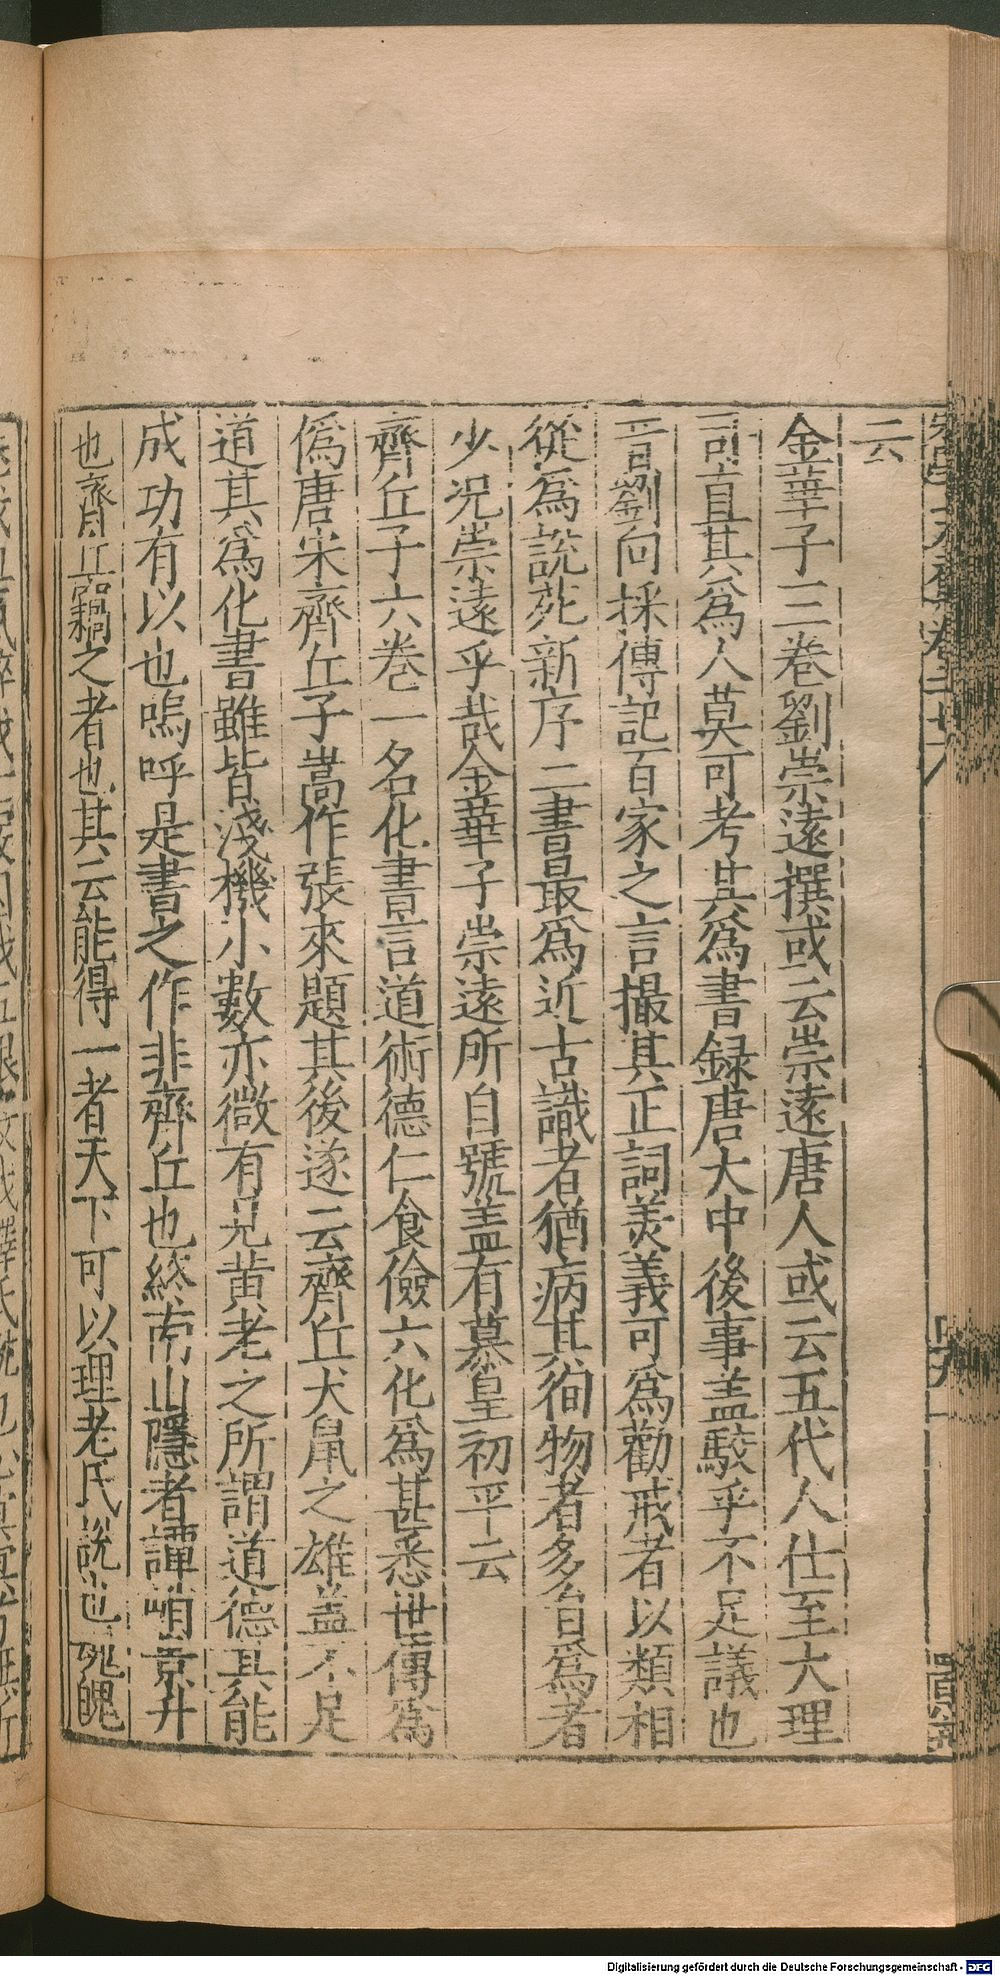 云
金華子三卷劉崇遠撰或云崇遠唐人或云五代人仕至大理
司直其爲人莫可考其爲書録唐大中後事盖駁乎不足議也
昔劉向採傳記百家之言撮其正詞羙義可爲勸戒者以類相
從爲說苑新序二書最爲近古識者猶病其徇物者多自爲者
少况崇遠乎哉金華子崇遠所自號盖有慕皇初平云
齊丘子六卷一名化書言道術德仁食儉六化爲甚悉世傳爲
僞唐宋齊丘子嵩作張來題其後遂云齊丘犬鼠之雄盖不足
道其爲化書雖皆淺機小數亦微有見黃老之所謂道德其能
成功有以也嗚呼是書之作非齊丘也終南山隱者譚峭景升
也齊丘竊之者也其云能得一者天下可以理老氏說也魄魄
Digitalisierung gefördert durch die Deutsche Forschungsgemeinschaft - DFG